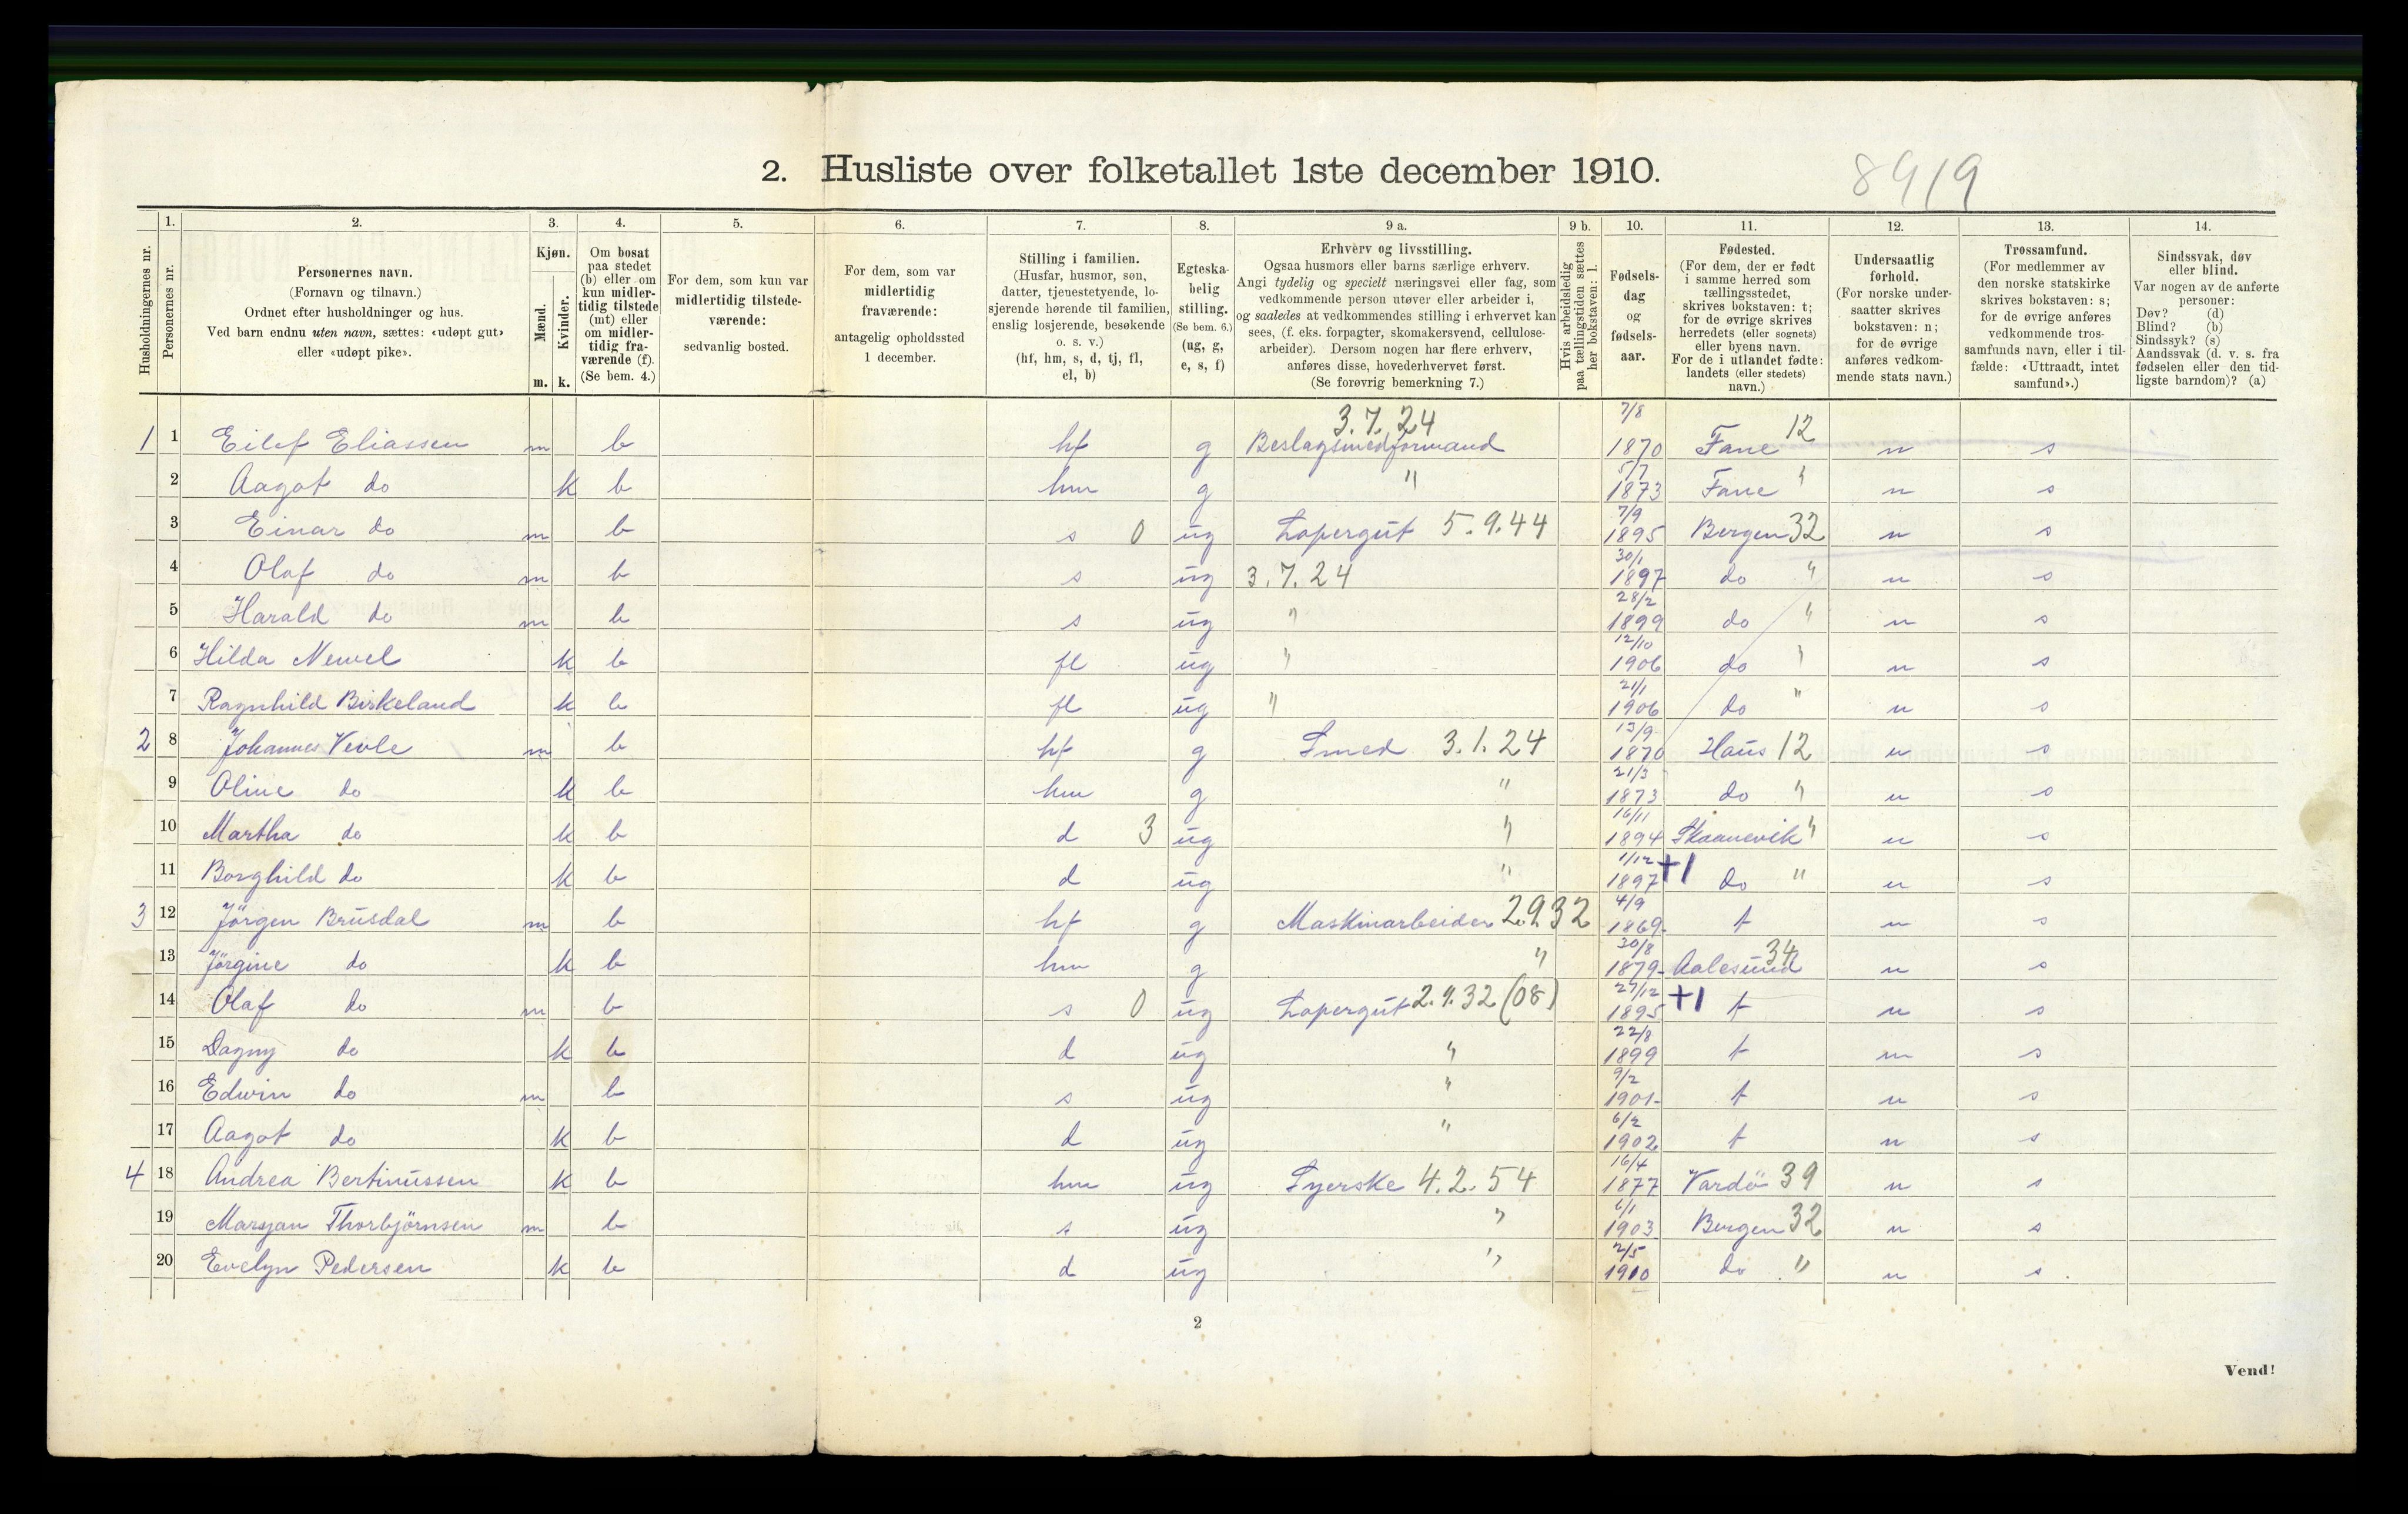 2. Husliste over folketallet 1ste december 1910.
8919
Husholdningernes nr.
1.
Personernes nr.
2.
Personernes navn.
(Fornavn og tilnavn.)
Ordnet efter husholdninger og hus.
Ved barn endnu uten navn, sættes: «udøpt gut»
eller «udøpt pike».
3.
Kjøn.
Mænd.
Kvinder.
m. k.
4.
Om bosat
paa stedet
(b) eller om
kun midler-
tidig tilstede
(mt) eller
om midler-
tidig fra-
værende (f).
(Se bem. 4.)
5.
For dem, som kun var
midlertidig tilstede-
værende:
sedvanlig bosted.
6.
For dem, som var
midlertidig
fraværende:
antagelig opholdssted
1 december.
7.
Stilling i familien.
(Husfar, husmor, søn,
datter, tjenestetyende, lo-
sjerende hørende til familien,
enslig losjerende, besøkende
o. s. v.)
(hf, hm, s, d, tj, fl,
el, b)
8.
Egteska-
belig
stilling.
(Se bem. 6.)
(ug, g,
e, s, f)
9 a.
Erhverv og livsstilling.
Ogsaa husmors eller barns særlige erhverv.
Angi tydelig og specielt næringsvei eller fag, som
vedkommende person utøver eller arbeider i,
og saaledes at vedkommendes stilling i erhvervet kan
sees, (f. eks. forpagter, skomakersvend, cellulose-
arbeider). Dersom nogen har flere erhverv,
anføres disse, hovederhvervet først.
(Se forøvrig bemerkning 7.)
9 b.
Hvis arbeidsledig
paa tællingstiden sættes
her bokstaven: l.
10.
Fødsels-
dag
og
fødsels-
aar.
11.
Fødested.
(For dem, der er født
i samme herred som
tællingsstedet,
skrives bokstaven: t;
for de øvrige skrives
herredets (eller sognets)
eller byens navn.
For de i utlandet fødte:
landets (eller stedets)
navn.)
12.
Undersaatlig
forhold.
(For norske under-
saatter skrives
bokstaven: n;
for de øvrige
anføres vedkom-
mende stats navn.)
13.
Trossamfund.
(For medlemmer av
den norske statskirke
skrives bokstaven: s;
for de øvrige anføres
vedkommende tros-
samfunds navn, eller i til-
fælde: «Uttraadt, intet
samfund».)
14.
Sindssvak, døv
eller blind.
Var nogen av de anførte
personer:
Døv? (d)
Blind? (b)
Sindssyk? (s)
Aandssvak (d. v. s. fra
fødselen eller den tid-
ligste barndom)? (a)
1 1 Eilef Eliassen m b hf g Beslagsmedformand 3.7.24 7/8 1870 Fane 12 n s
2 Aagot do k b hm g " 5/7 1873 Fane " n s
3 Einar do m b s 0 ug Lopergut 5.9.44 7/9 1895 Bergen 32 n s
4 Olaf do m b s ug 3.7.24 30/1 1897 do " n s
5 Harald do m b s ug " 28/2 1899 do " n s
6 Hilda k b fl ug " 12/10 1906 do " n s
7 Ragnhild Birkeland k b fl ug " 21/1 1906 do " n s
2 8 Johannes Vevle m b hf g Smed 3.1.24 13/9 1870 Haus 12 n s
9 Oline do k b hm g " 21/3 1873 do " n s
10 Martha do k b d 3 ug " 16/11 1894 Skaanevik " n s
11 Borghild do k b d ug " 1/12 1897 +1 do " n s
3 12 Jörgen Brusdal m b hf g Maskinarbeider 2.9.32 4/9 1869 t n s
13 Jörgine do k b hm g " 30/8 1879 Aalesund 34 n s
14 Olaf do m b s 0 ug Lopergut 2.9.32 (08) 27/12 1895 +1 t n s
15 Dagny do k b d ug " 22/8 1899 t n s
16 Edwin do m b s ug " 9/2 1901 t n s
17 Aagot do k b d ug " 6/2 1902 t n s
4 18 Andrea Bertinussen k b hm ug Syerske 4.2.54 16/4 1877 Vardö 39 n s
19 Marsjan Thorbjörnsen m b s ug " 6/1 1903 Bergen 32 n s
20 Evelyn Pedersen k b d ug " 2/5 1910 do " n s
2
Vend!